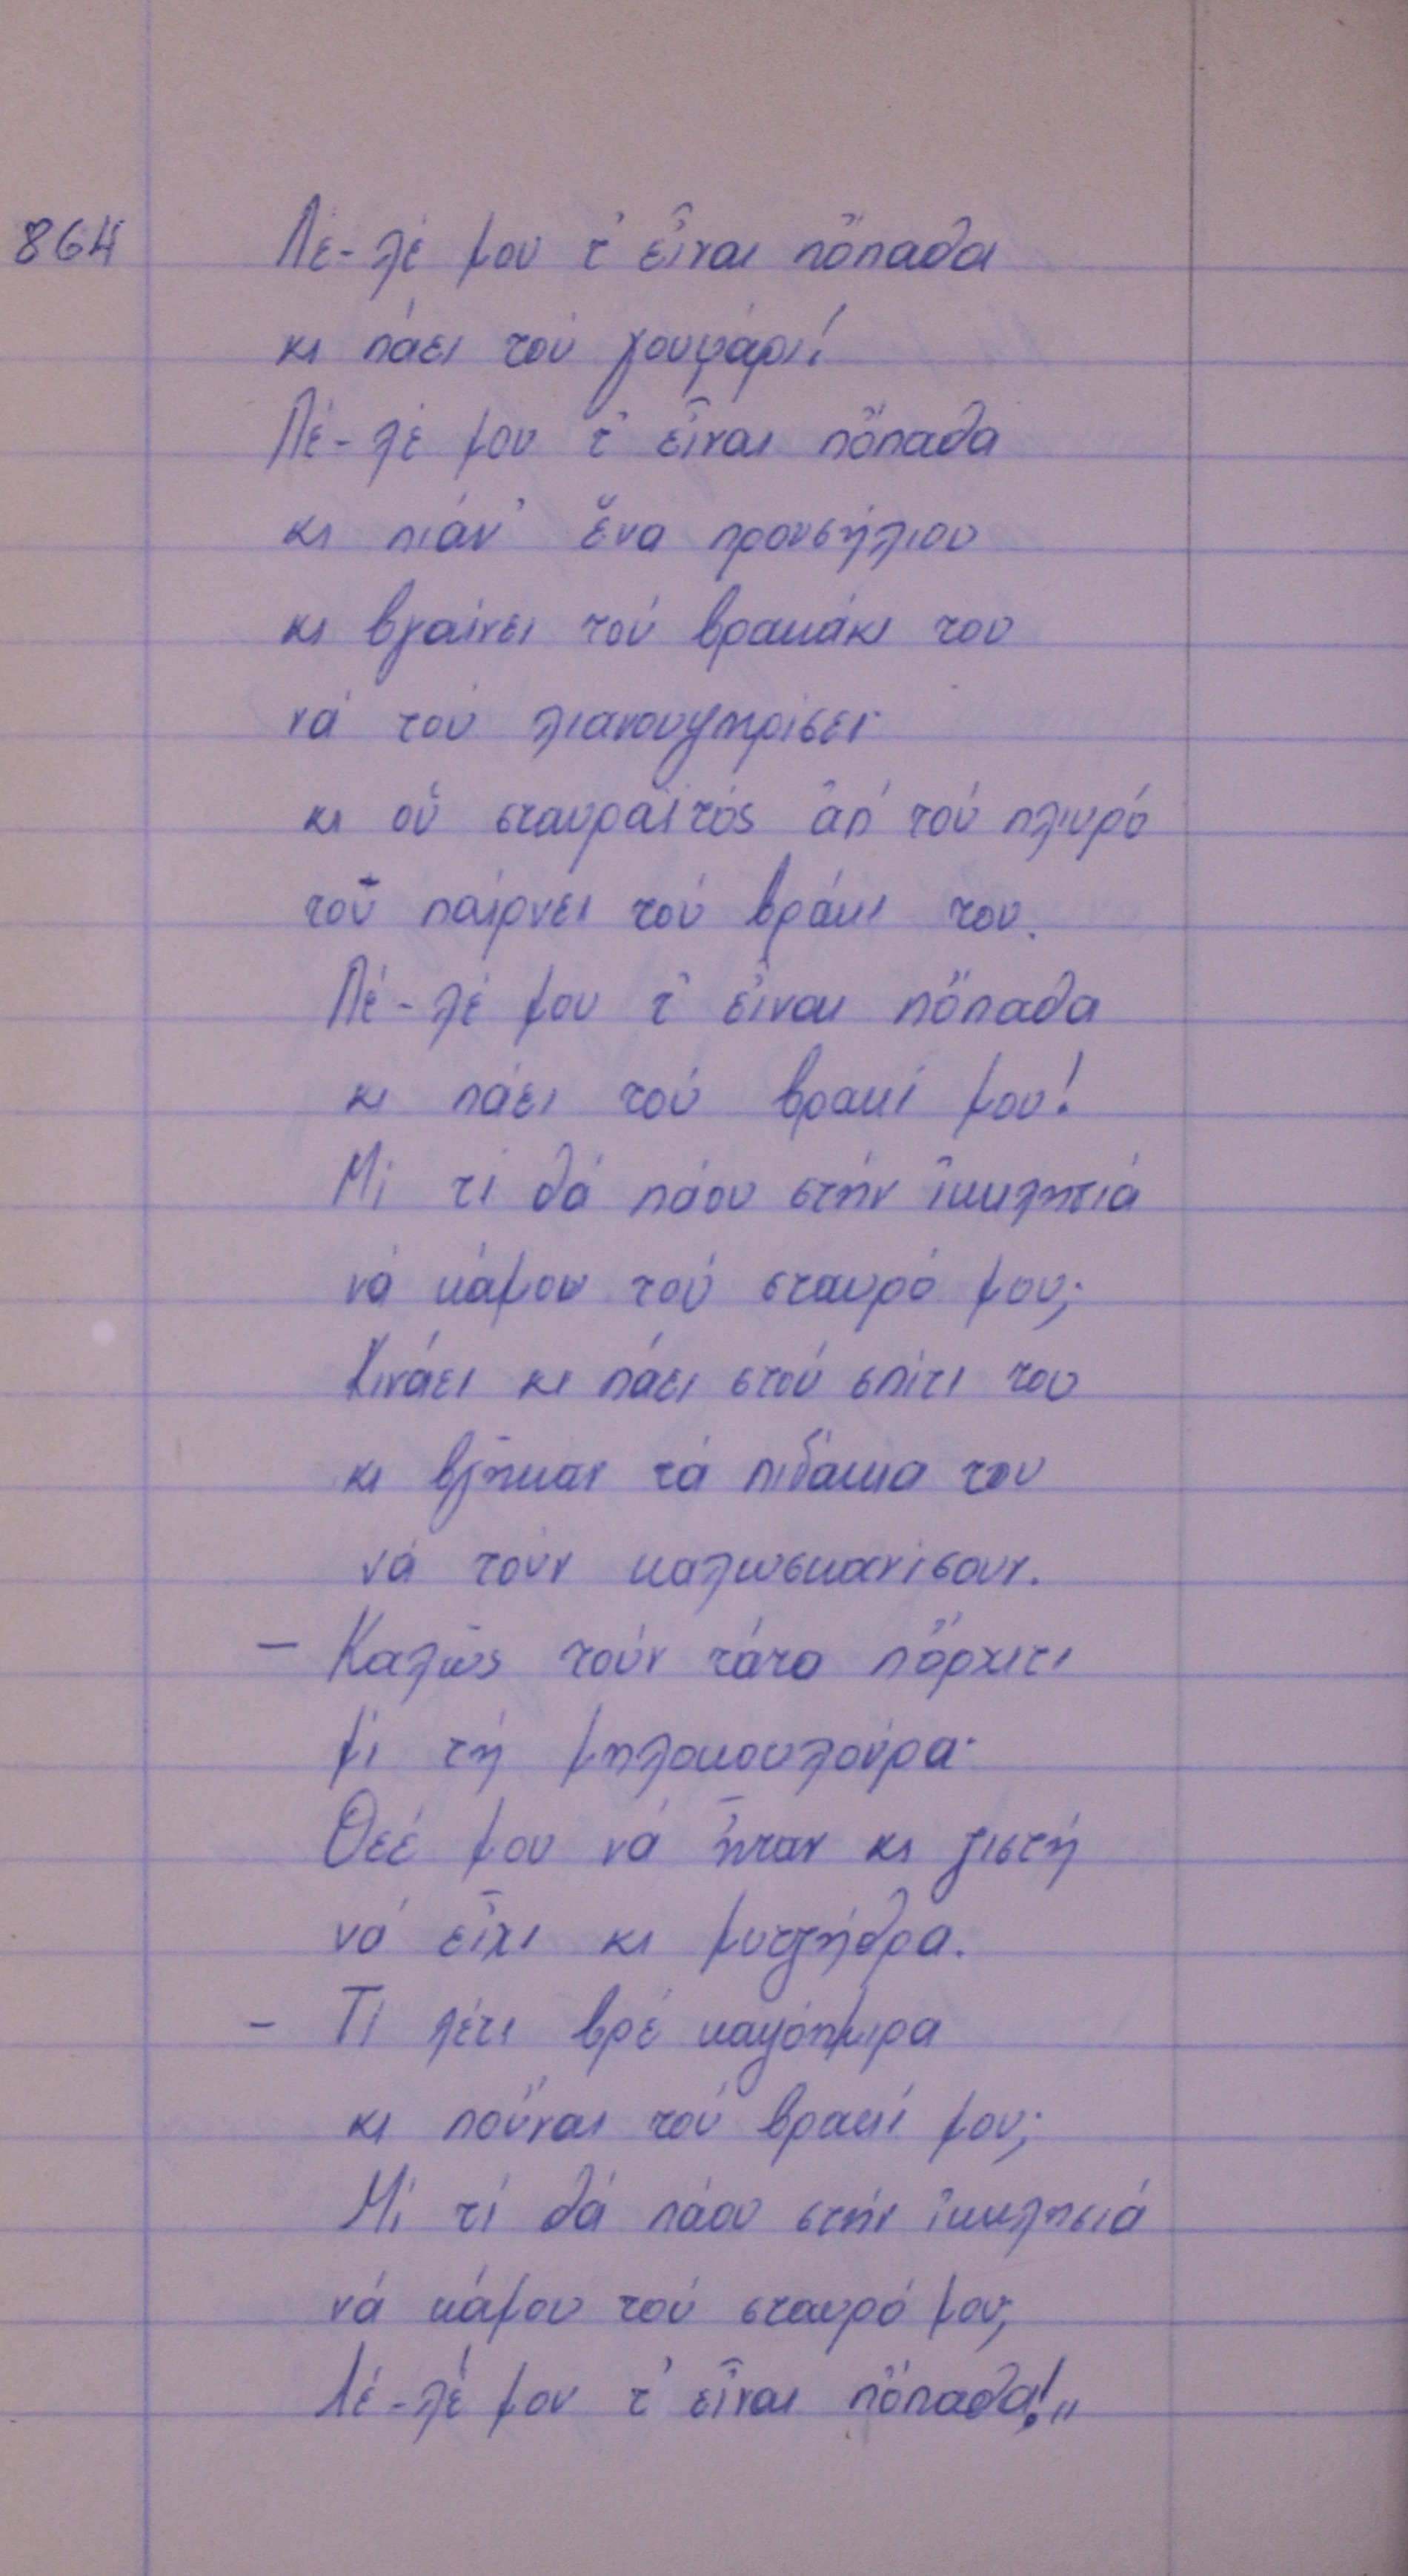 864 Λέ-λέ μου τ' εἶναι πὄπαθα
κι πάει τού γουφάρι!
Λέ-λέ μου τ' εἶναι πὄπαθα
κι πιάν' ἕνα προυσήλιου
κι βγαίνει τού βρακάκι του
νά τού λιανουψηρίσει·
κι οὑ σταυραϊτός ἀπ' τού πλιυρό
τοῦ παίρνει τού βράκι του.
Λέ-λέ μου τ' εἶναι πὄπαθα
κι πάει τού βρακί μου!
Μί τί θά πάου στήν ἰκκλησιά
νά κάμου τού σταυρό μου;
Κινάει κι πάει στού σπίτι του
κι βγῆκαν τά πιδάκια του
νά τούν καλωσκανίσουν.
– Καλῶς τούν τάτα πὄρχιτι
μί τή μηλοκουλούρα·
Θεέ μου νά ἦταν κι ζιστή
νά εἶχι κι μυτζήθρα.
– Τί λέτι βρέ καψόπμιρα
κι ποὔναι τού βρακί μου;
Μί τί θά πάου στήν ἰκκλησιά
νά κάμου τού σταυρό μου;
Λέ-λέ μου τ' εἶναι πὄπαθα!"